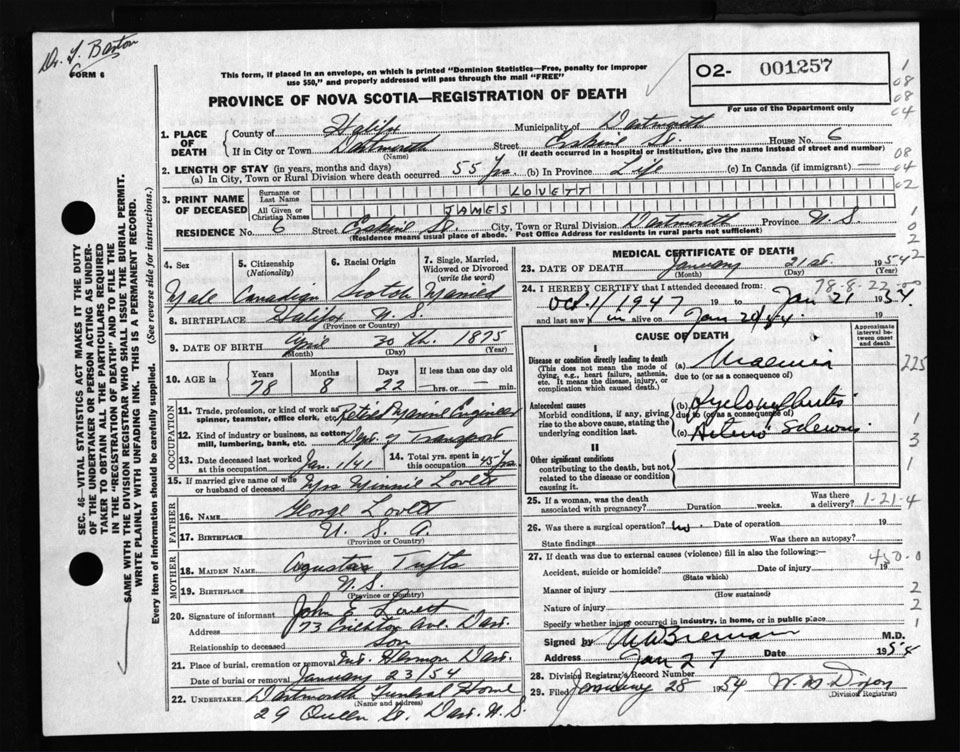 Dr. J. Barton
FORM 6
This form, if placed in an envelope, on which is printed "Dominion Statistics—Free, penalty for improper
use $50," and properly addressed will pass through the mail "FREE"
O2- 001257
For use of the Department only
PROVINCE OF NOVA SCOTIA—REGISTRATION OF DEATH
1. PLACE OF DEATH
County of Halifax Municipality of Dartmouth
If in City or Town Dartmouth Street Erskine St. House No. 6
(Name) (If death occurred in a hospital or institution, give the name instead of street and number)
2. LENGTH OF STAY (in years, months and days)
(a) In City, Town or Rural Division where death occurred 55 Yrs. (b) In Province Life (c) In Canada (if immigrant) —
3. PRINT NAME OF DECEASED
Surname or Last Name LOVETT
All Given or Christian Names JAMES
RESIDENCE No. 6 Street Erskine St. City, Town or Rural Division Dartmouth Province N. S.
(Residence means usual place of abode. Post Office Address for residents in rural parts not sufficient)
4. Sex
Male
5. Citizenship (Nationality)
Canadian
6. Racial Origin
Scotch
7. Single, Married, Widowed or Divorced (write the word)
Married
8. BIRTHPLACE Halifax N. S.
(Province or Country)
9. DATE OF BIRTH April 30 th. 1875
(Month) (Day) (Year)
10. AGE in Years Months Days If less than one day old
78 8 22 —hrs. or — min.
OCCUPATION
11. Trade, profession, or kind of work as spinner, teamster, office clerk, etc. Retired Marine Engineer
12. Kind of industry or business, as cotton-mill, lumbering, bank, etc. Dept. of Transport
13. Date deceased last worked at this occupation Jan. 1/41
14. Total yrs. spent in this occupation 45 Yrs.
15. If married give name of wife or husband of deceased Mrs Minnie Lovett
FATHER
16. NAME George Lovett
17. BIRTHPLACE U. S. A.
(Province or Country)
MOTHER
18. MAIDEN NAME Augusta Tufts
19. BIRTHPLACE N. S.
(Province or Country)
20. Signature of informant John E. Lovett
Address 73 Crichton Ave. Dart.
Relationship to deceased Son
21. Place of burial, cremation or removal Mt. Hermon Dart.
Date of burial or removal January 23/54
22. UNDERTAKER Dartmouth Funeral Home
(Name and address)
29 Queen St. Dart. N. S.
MEDICAL CERTIFICATE OF DEATH
23. DATE OF DEATH January 21st. 1954
(Month) (Day) (Year)
24. I HEREBY CERTIFY that I attended deceased from:
78-8-22
Oct. 1/1947 19 to Jan 21 1954
and last saw h im alive on Jan 20 19
CAUSE OF DEATH
Approximate interval between onset and death
I
Disease or condition directly leading to death
(This does not mean the mode of dying, e.g., heart failure, asthenia, etc. It means the disease, injury, or complication which caused death.)
(a) Uraemia
due to (or as a consequence of)
Antecedent causes
Morbid conditions, if any, giving rise to the above cause, stating the underlying condition last.
(b) Pyelonephritis
due to (or as a consequence of)
(c) Arterio Sclerosis
II
Other significant conditions
contributing to the death, but not related to the disease or condition causing it
25. If a woman, was the death associated with pregnancy? Duration weeks. Was there a delivery?
1-21-4
26. Was there a surgical operation? no. Date of operation 19
State findings Was there an autopsy?
27. If death was due to external causes (violence) fill in also the following:—
Accident, suicide or homicide? Date of injury 19
(State which)
Manner of injury
(How sustained)
Nature of injury
Specify whether injury occurred in industry, in home, or in public place
Signed by M.D.
Address Date Jan 27 1954
28. Division Registrar's Record Number
29. Filed January 28 1954 W. M. Dixon
(Division Registrar)
SEC. 46—VITAL STATISTICS ACT MAKES IT THE DUTY
OF THE UNDERTAKER OR PERSON ACTING AS UNDER-
TAKER TO OBTAIN ALL THE PARTICULARS REQUIRED
IN THE "REGISTRATION OF DEATH" AND TO FILE THE
SAME WITH THE DIVISION REGISTRAR WHO SHALL ISSUE THE BURIAL PERMIT.
WRITE PLAINLY WITH UNFADING INK. THIS IS A PERMANENT RECORD.
Every item of information should be carefully supplied. (See reverse side for instructions.)